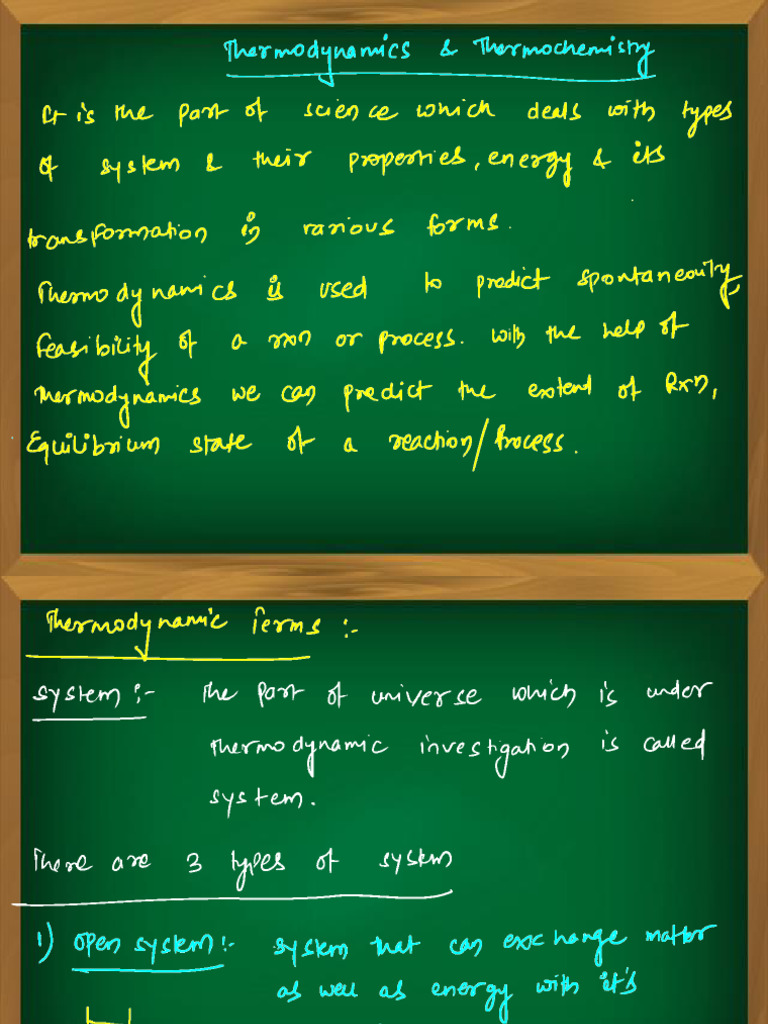 Thermodynamics & Thermochemistry
It is the part of science which deals with types
of system & their properties, energy & its
transformation in various forms.
Thermodynamics is used to predict spontaneouity,
feasibility of a rxn or process. with the help of
thermodynamics we can predict the extend of Rxn,
Equilibrium state of a reaction/Process.
Thermodynamic Terms :-
system :- The part of universe which is under
thermodynamic investigation is called
system.
There are 3 types of system
1) open system :- system that can exchange matter
as well as energy with it's